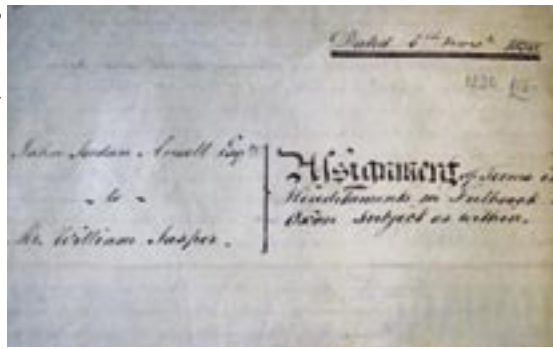 Dated 6th Novr
John Jordan Ansell Esqre
to
Mr. William Jasper.
Assignment of
Hereditaments in Fulbrook
Oxon subject as within.